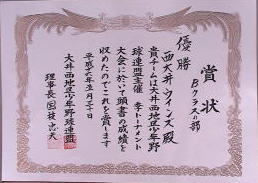 賞状
Bクラスの部
優勝
西大井ウイングス殿
貴チームは大井西地区少年野
球連盟主催 季トーナメント
大会に於いて頭書の成績を
収めたのでこれを賞します
平成六年五月三十日
大井西地区少年野球連盟
理事長